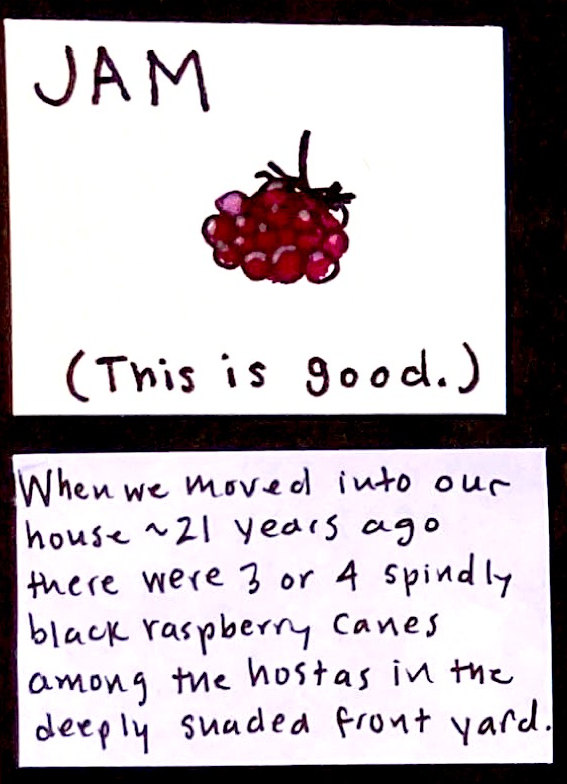 JAM
(This is good.)
When we moved into our
house ~21 years ago
there were 3 or 4 spindly
black raspberry canes
among the hostas in the
deeply shaded front yard.